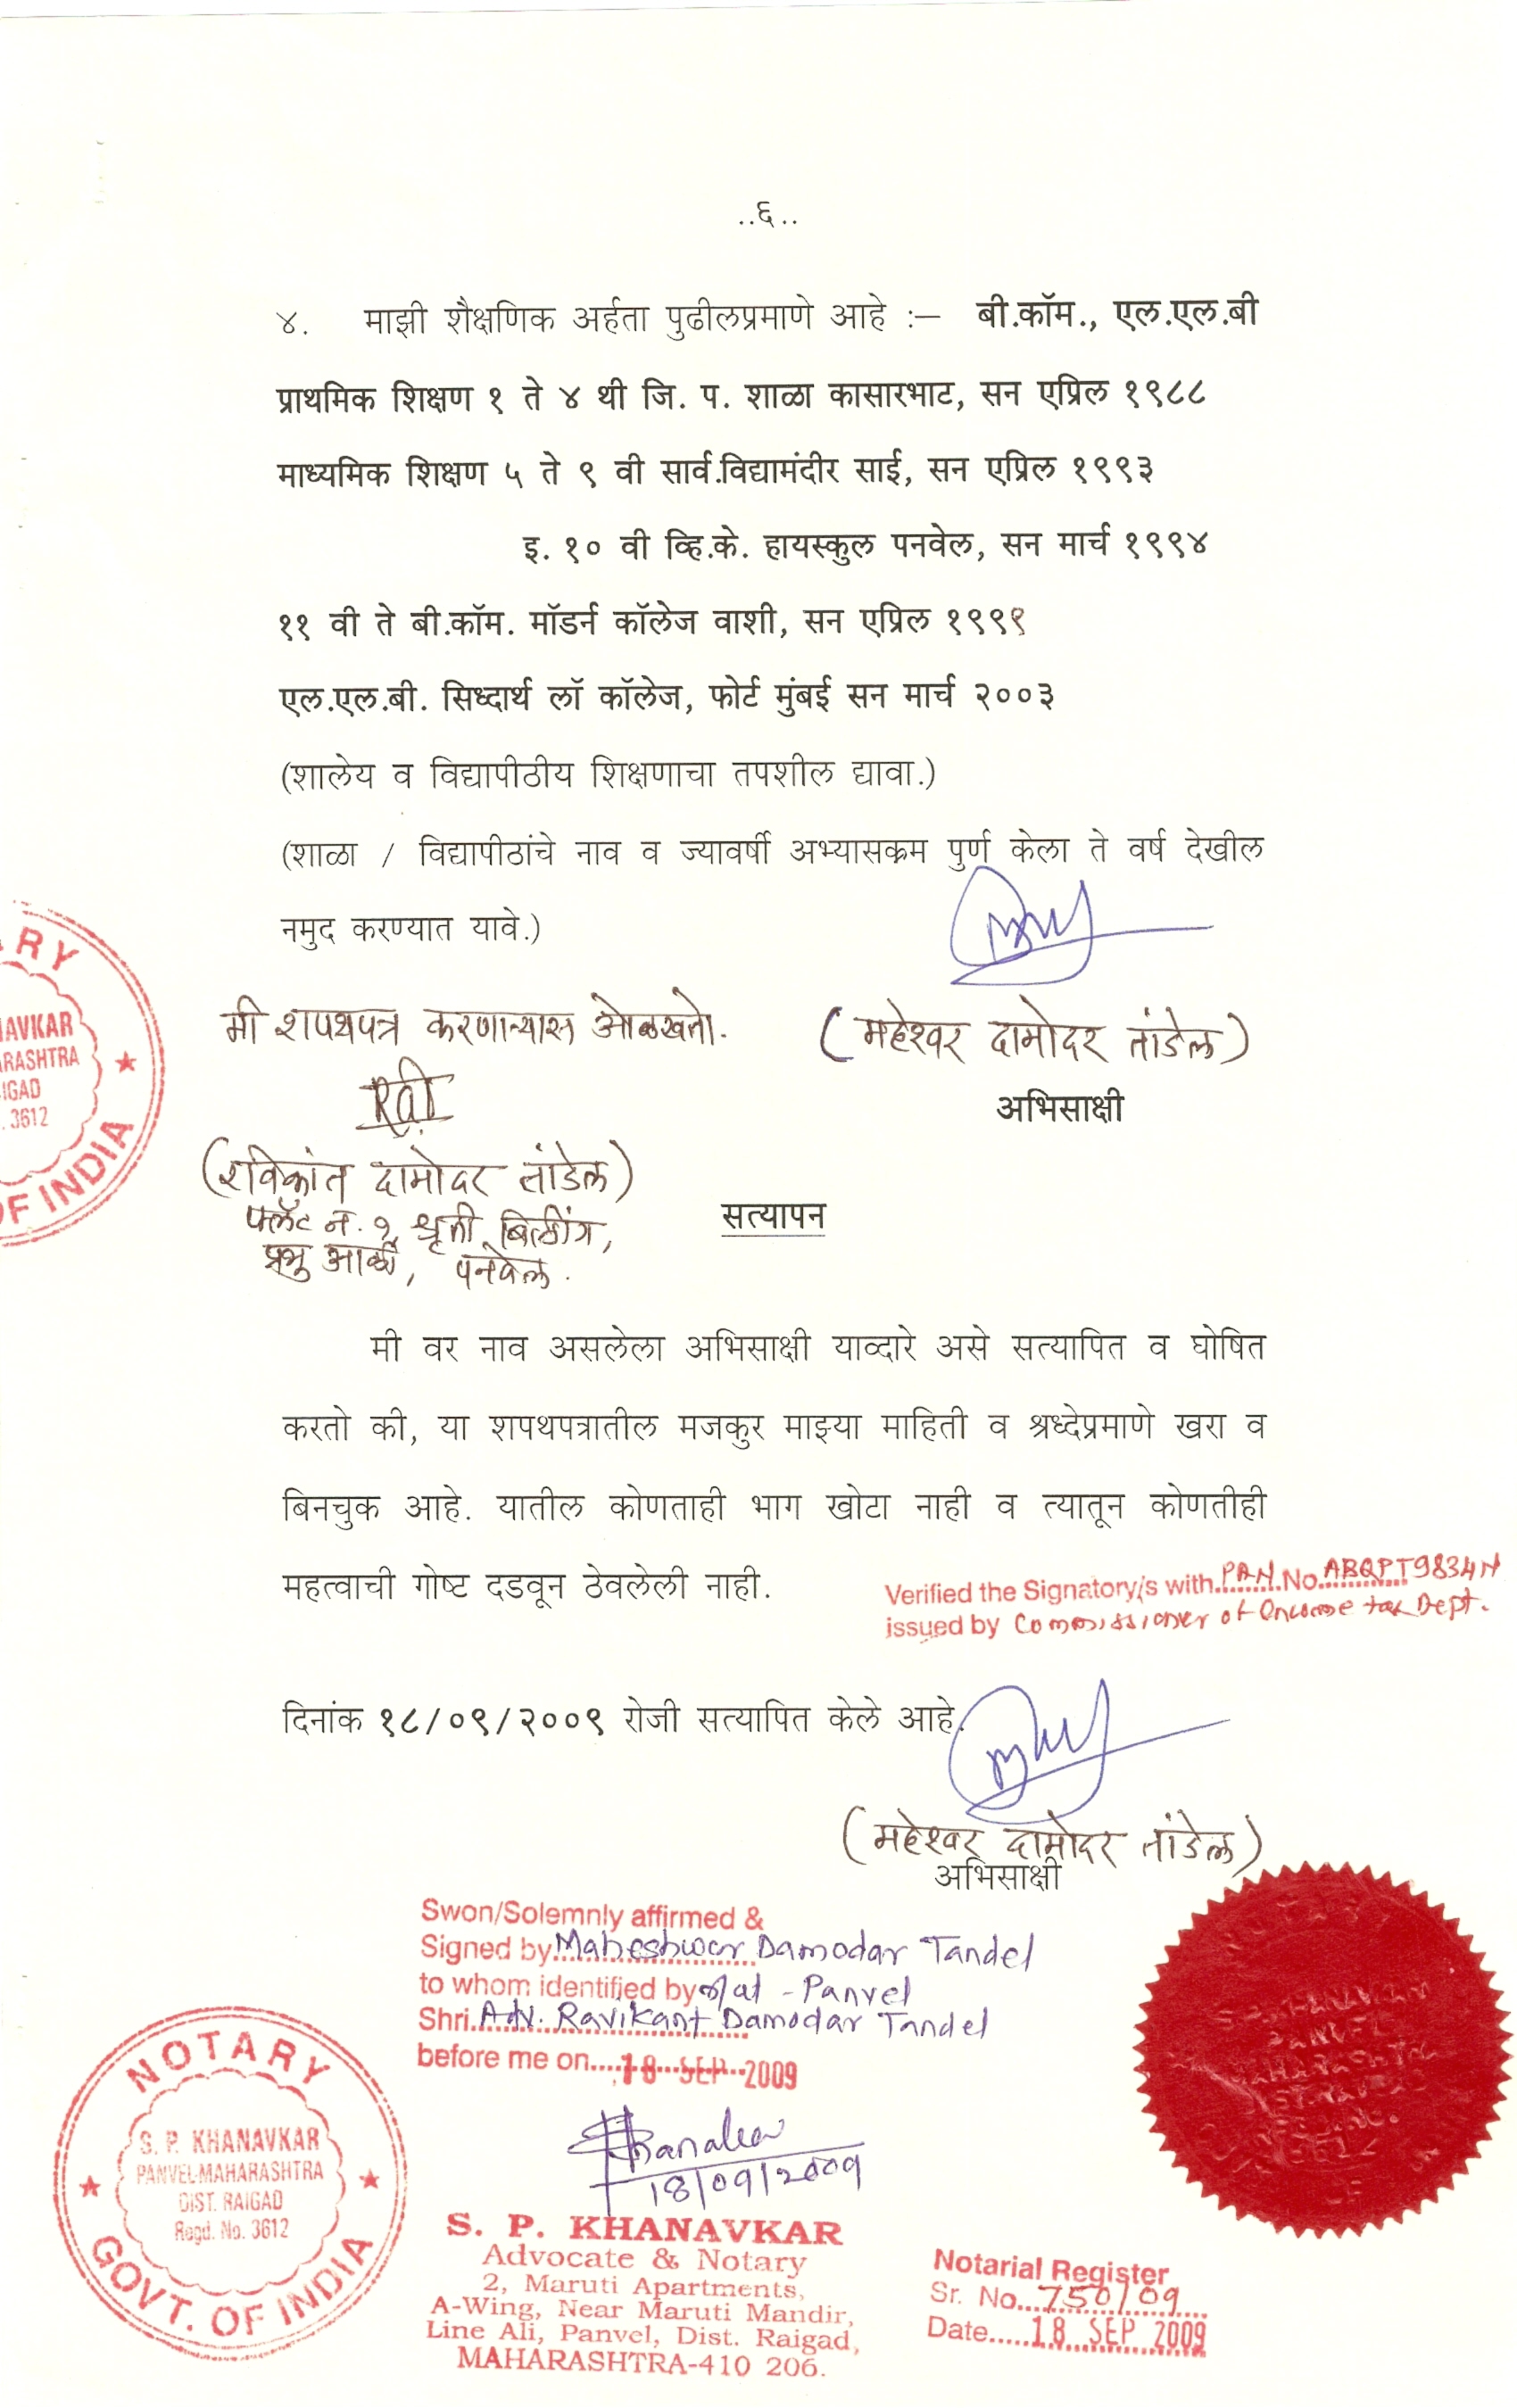 ..६..
४. माझी शैक्षणिक अर्हता पुढीलप्रमाणे आहे :— बी.कॉम., एल.एल.बी
प्राथमिक शिक्षण १ ते ४ थी जि. प. शाळा कासारभाट, सन एप्रिल १९८८
माध्यमिक शिक्षण ५ ते ९ वी सार्व.विद्यामंदीर साई, सन एप्रिल १९९३
इ. १० वी व्हि.के. हायस्कुल पनवेल, सन मार्च १९९४
११ वी ते बी.कॉम. मॉडर्न कॉलेज वाशी, सन एप्रिल १९९९
एल.एल.बी. सिध्दार्थ लॉ कॉलेज, फोर्ट मुंबई सन मार्च २००३
(शालेय व विद्यापीठीय शिक्षणाचा तपशील द्यावा.)
(शाळा / विद्यापीठांचे नाव व ज्यावर्षी अभ्यासक्रम पुर्ण केला ते वर्ष देखील
नमुद करण्यात यावे.)
ARY
NAVKAR
ARASHTRA
IGAD
. 3612
OF INDIA
मी शपथपत्र करणाऱ्यास ओळखतो.
(महेश्वर दामोदर तांडेल)
अभिसाक्षी
(रविकांत दामोदर तांडेल)
फ्लॅट नं. १, धृती बिल्डींग,
प्रभु आळी, पनवेल.
सत्यापन
मी वर नाव असलेला अभिसाक्षी याव्दारे असे सत्यापित व घोषित
करतो की, या शपथपत्रातील मजकुर माझ्या माहिती व श्रध्देप्रमाणे खरा व
बिनचुक आहे. यातील कोणताही भाग खोटा नाही व त्यातून कोणतीही
महत्वाची गोष्ट दडवून ठेवलेली नाही.
Verified the Signatory/s with PAN No. ABQPT9834N
issued by Commissioner of Income tax Dept.
दिनांक १८/०९/२००९ रोजी सत्यापित केले आहे.
(महेश्वर दामोदर तांडेल)
अभिसाक्षी
Swon/Solemnly affirmed &
Signed by Maheshwar Damodar Tandel
to whom identified by r/at - Panvel
Shri. Adv. Ravikant Damodar Tandel
before me on....18 SEP 2009
18/09/2009
NOTARY
S. P. KHANAVKAR
PANVEL-MAHARASHTRA
DIST. RAIGAD
Regd. No. 3612
GOVT. OF INDIA
S. P. KHANAVKAR
Advocate & Notary
2, Maruti Apartments,
A-Wing, Near Maruti Mandir,
Line Ali, Panvel, Dist. Raigad,
MAHARASHTRA-410 206.
Notarial Register
Sr. No...750/09
Date.....18 SEP 2009